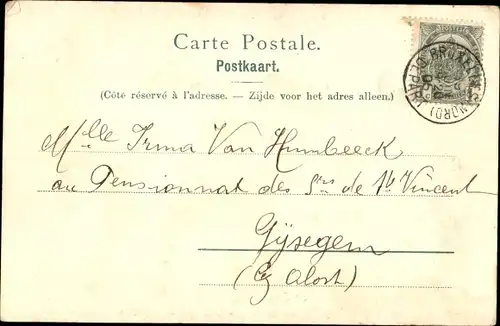 Carte Postale.
Postkaart.
(Côté réservé à l'adresse. — Zijde voor het adres alleen.)
BRUXELLES (NORD)
Mlle Irma Van Humbeeck
au Pensionnat des Srs de St Vincent
Gijsegem
(Alost)